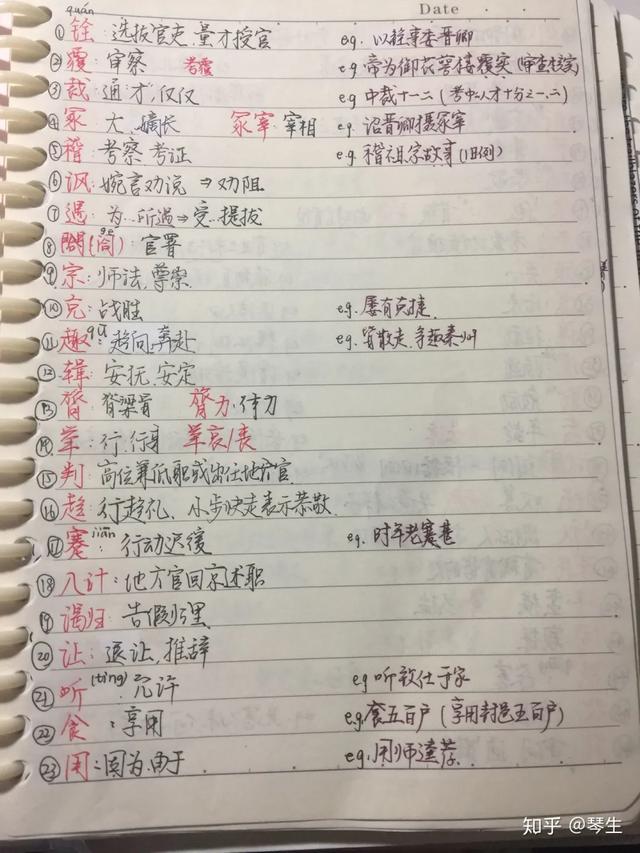 Date
quán
①铨: 选拔官吏,量才授官 eg. 以铨事委晋卿
②覆 审察 考覆 eg 帝为御花萼楼覆实(审查核实)
③裁 通才,仅仅 eg 中裁十一二(考中人才十分之一、二)
④冢 大、嫡长 冢宰 宰相 eg 诏晋卿摄冢宰
⑤稽 考察 考证 eg. 稽祖宗故事(旧例)
⑥讽: 婉言劝说 ⇒劝阻
⑦遇: 为..所遇⇒受..提拔
⑧閤(阁)gé 官署
⑨宗: 师法,尊崇
⑩克: 战胜 eg. 屡有克捷
⑪趣qū: 趋向,奔赴
⑫辑: 安抚,安定
⑬膂: 脊梁骨 膂力:体力
⑭ 行,行身
⑮判: 高位兼低职或出任地方官
⑯趋: 行趋礼、小步快走表示恭敬
⑰蹇jiǎn: 行动迟缓 eg. 时年老蹇甚
⑱入计: 地方官回京述职
⑲谒归: 告假归里
⑳让: 退让,推辞
㉑听(tìng): 允许 eg 听致仕于家
㉒食: 享用 eg.食五百户(享用封邑五百户)
㉓用: 因为.由于 eg.用师逵荐
知乎 @琴生